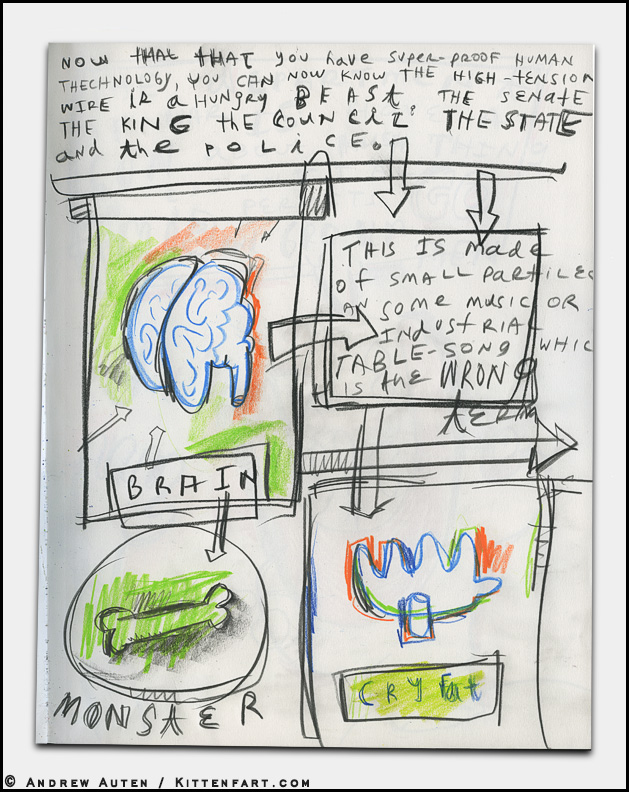 NOW THAT THAT you have SUPER-PROOF HUMAN
THECHNOLOGY, YOU CAN NOW KNOW THE HIGH-TENSION
WIRE IS a HUNGRY BEAST. THE SENATE
THE KING the COUNCIL. THE STATE
and the POLICE.
THIS IS made
of SMALL PARTICLES
AN SOME MUSIC OR
INDUSTRIAL
TABLE-SONG WHIC
is the WRONG
TERM
BRAIN
MONSTER
CRY Fat
© ANDREW AUTEN / KITTENFART.COM